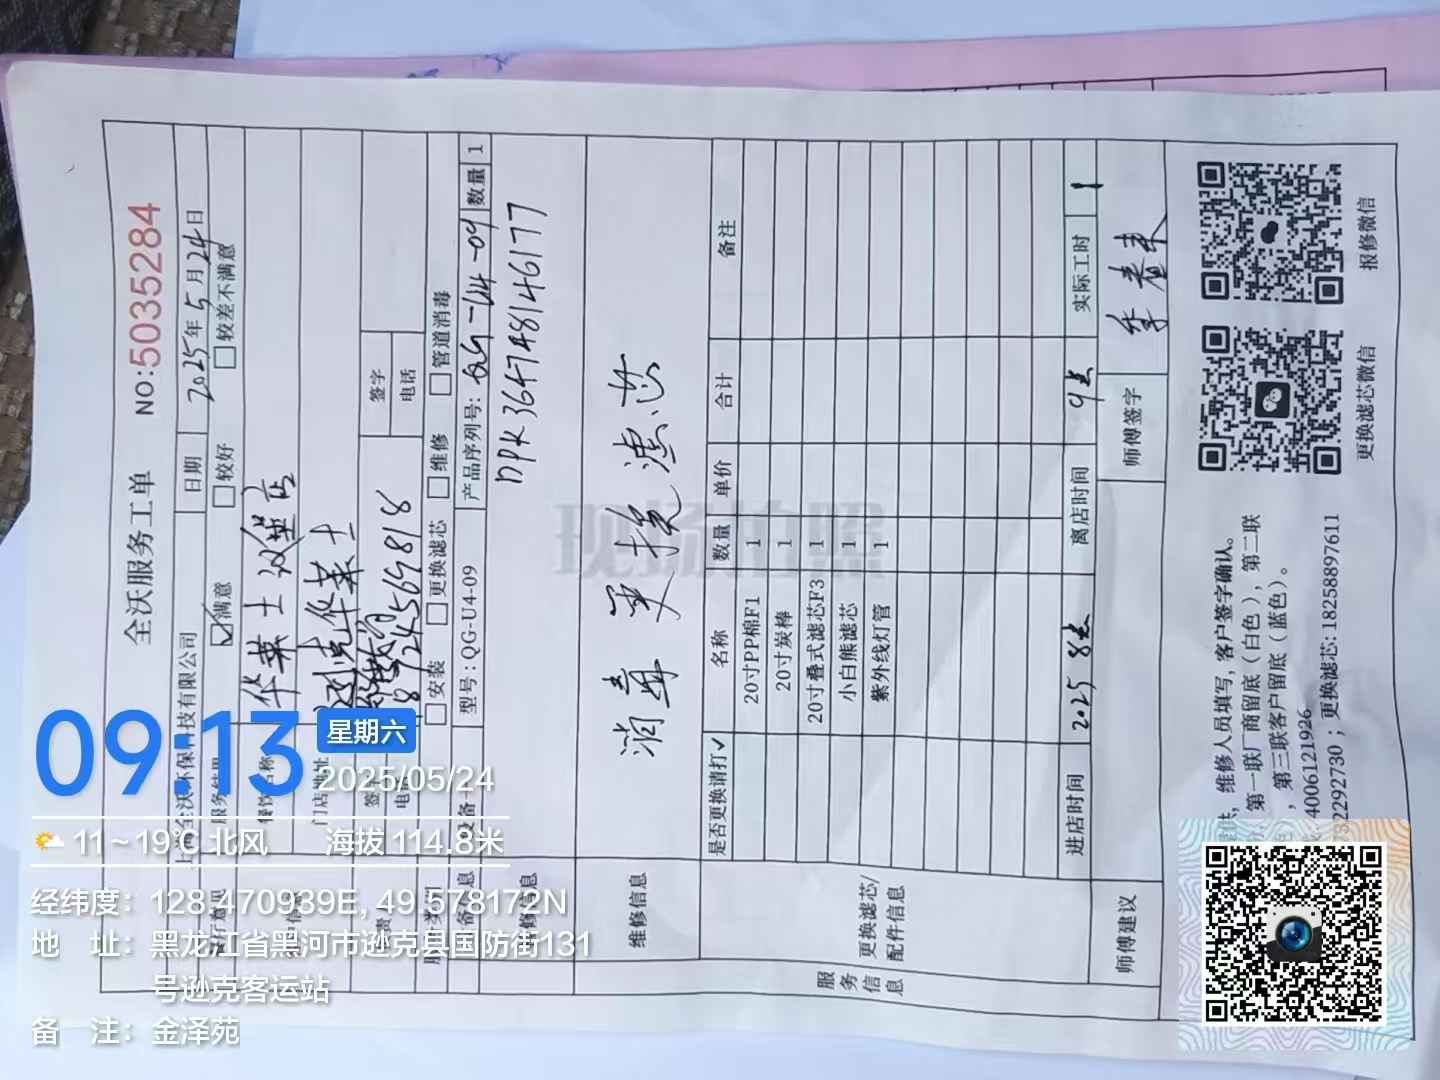 全沃服务工单 NO:5035284
上海全沃环保科技有限公司 日期 2025年5月24日
满意 较好 较差不满意
餐饮名称 华莱士汉堡店
门店地址 逊克华莱士
签字
电话 18724569818 电话
安装 更换滤芯 维修 管道消毒
型号:QG-U4-09 产品序列号: QG-U4-09 数量 1
DPK364748146177
维修信息 消毒更换滤芯
是否更换请打✓ 名称 数量 单价 合计 备注
更换滤芯/配件信息
服务信息
20寸PP棉F1 1
20寸炭棒 1
20寸叠式滤芯F3 1
小白熊滤芯 1
紫外线灯管 1
进店时间 2025 8点 离店时间 9点 实际工时 1
师傅建议 师傅签字
维修人员填写,客户签字确认。
第一联厂商留底(白色),第二联
第三联客户留底(蓝色)。
4006121926
732292730; 更换滤芯: 18258897611
更换滤芯微信 报修微信
现场拍照
09:13 星期六
2025/05/24
11~19℃ 北风 海拔 114.8米
经纬度: 128.470939E, 49.578172N
地 址: 黑龙江省黑河市逊克县国防街131
号逊克客运站
备 注: 金泽苑